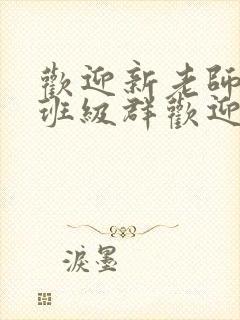 歡迎新老師
班級群歡迎
淚墨